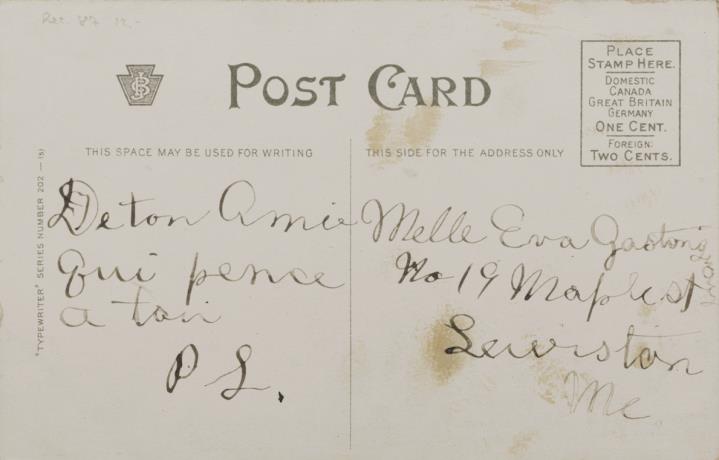 Rec. 87 12.-
POST CARD
PLACE
STAMP HERE.
DOMESTIC
CANADA
GREAT BRITAIN
GERMANY
ONE CENT.
FOREIGN:
TWO CENTS.
THIS SPACE MAY BE USED FOR WRITING
THIS SIDE FOR THE ADDRESS ONLY
"TYPEWRITER" SERIES NUMBER 202 — (5)
De ton Amie
qui pence
a toi
P L.
Melle Eva Gastong
No 19 Maple st
Lewiston
Me